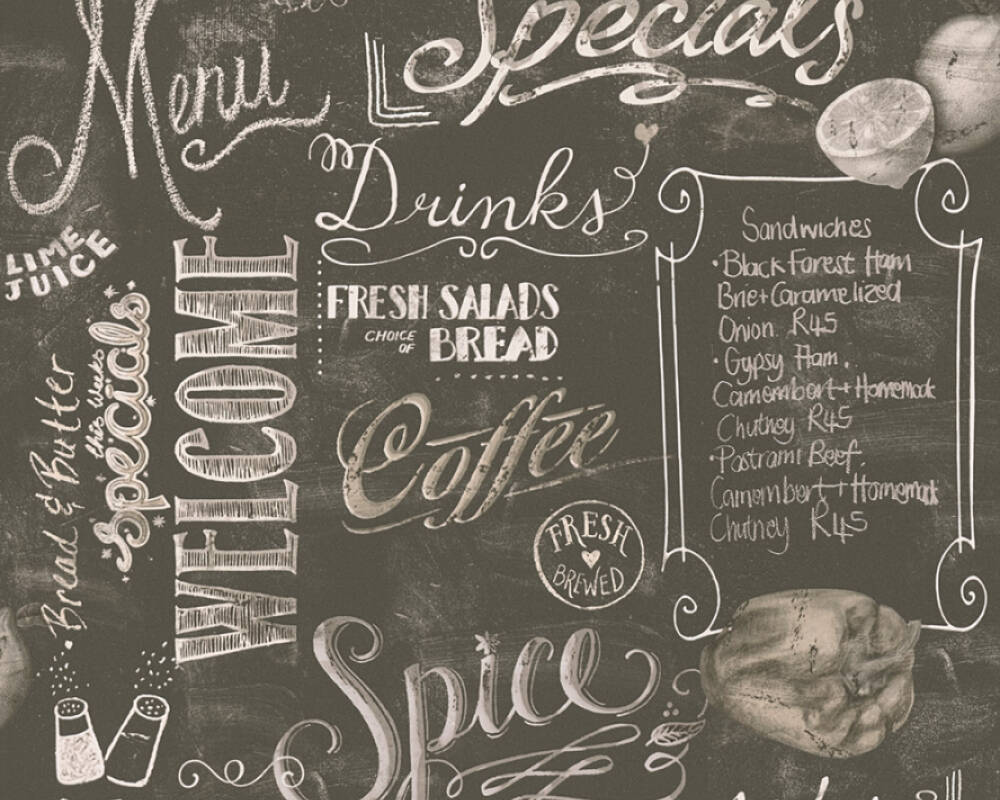 Menu
Specials
Drinks
LIME
JUICE
FRESH SALADS
CHOICE
OF
BREAD
Coffee
FRESH
BREWED
WELCOME
this weeks
specials
Bread & Butter
Spice
Sandwiches
·Black Forest Ham
Brie+Caramelized
Onion R45
·Gypsy Ham.
Camembert+Homemade
Chutney R45
·Pastrami Beef.
Camembert+Homemade
Chutney R45